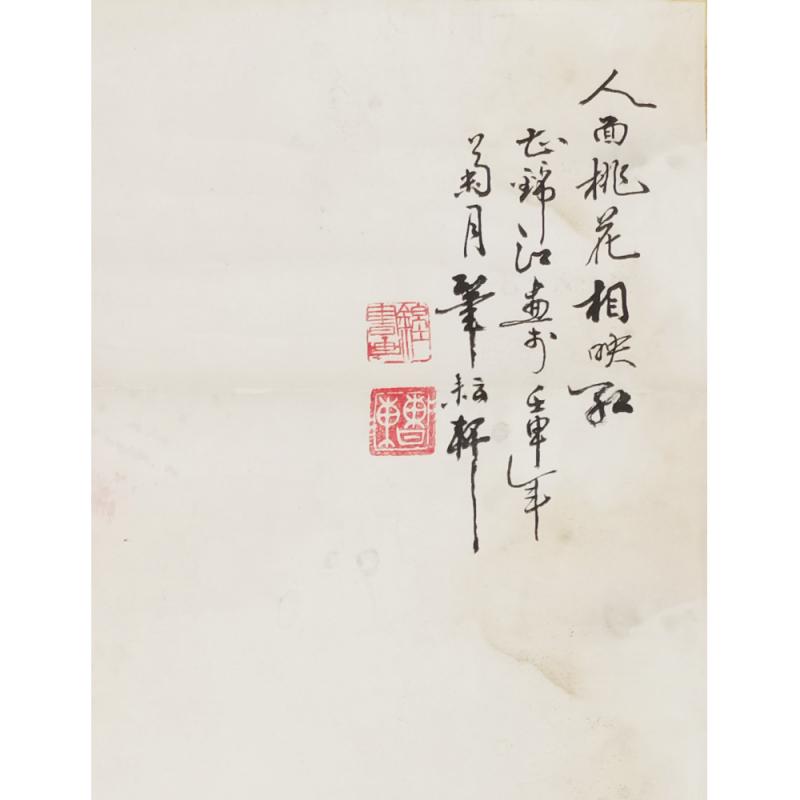 人面桃花相映紅
錦江畫於壬申年
菊月筆耘軒